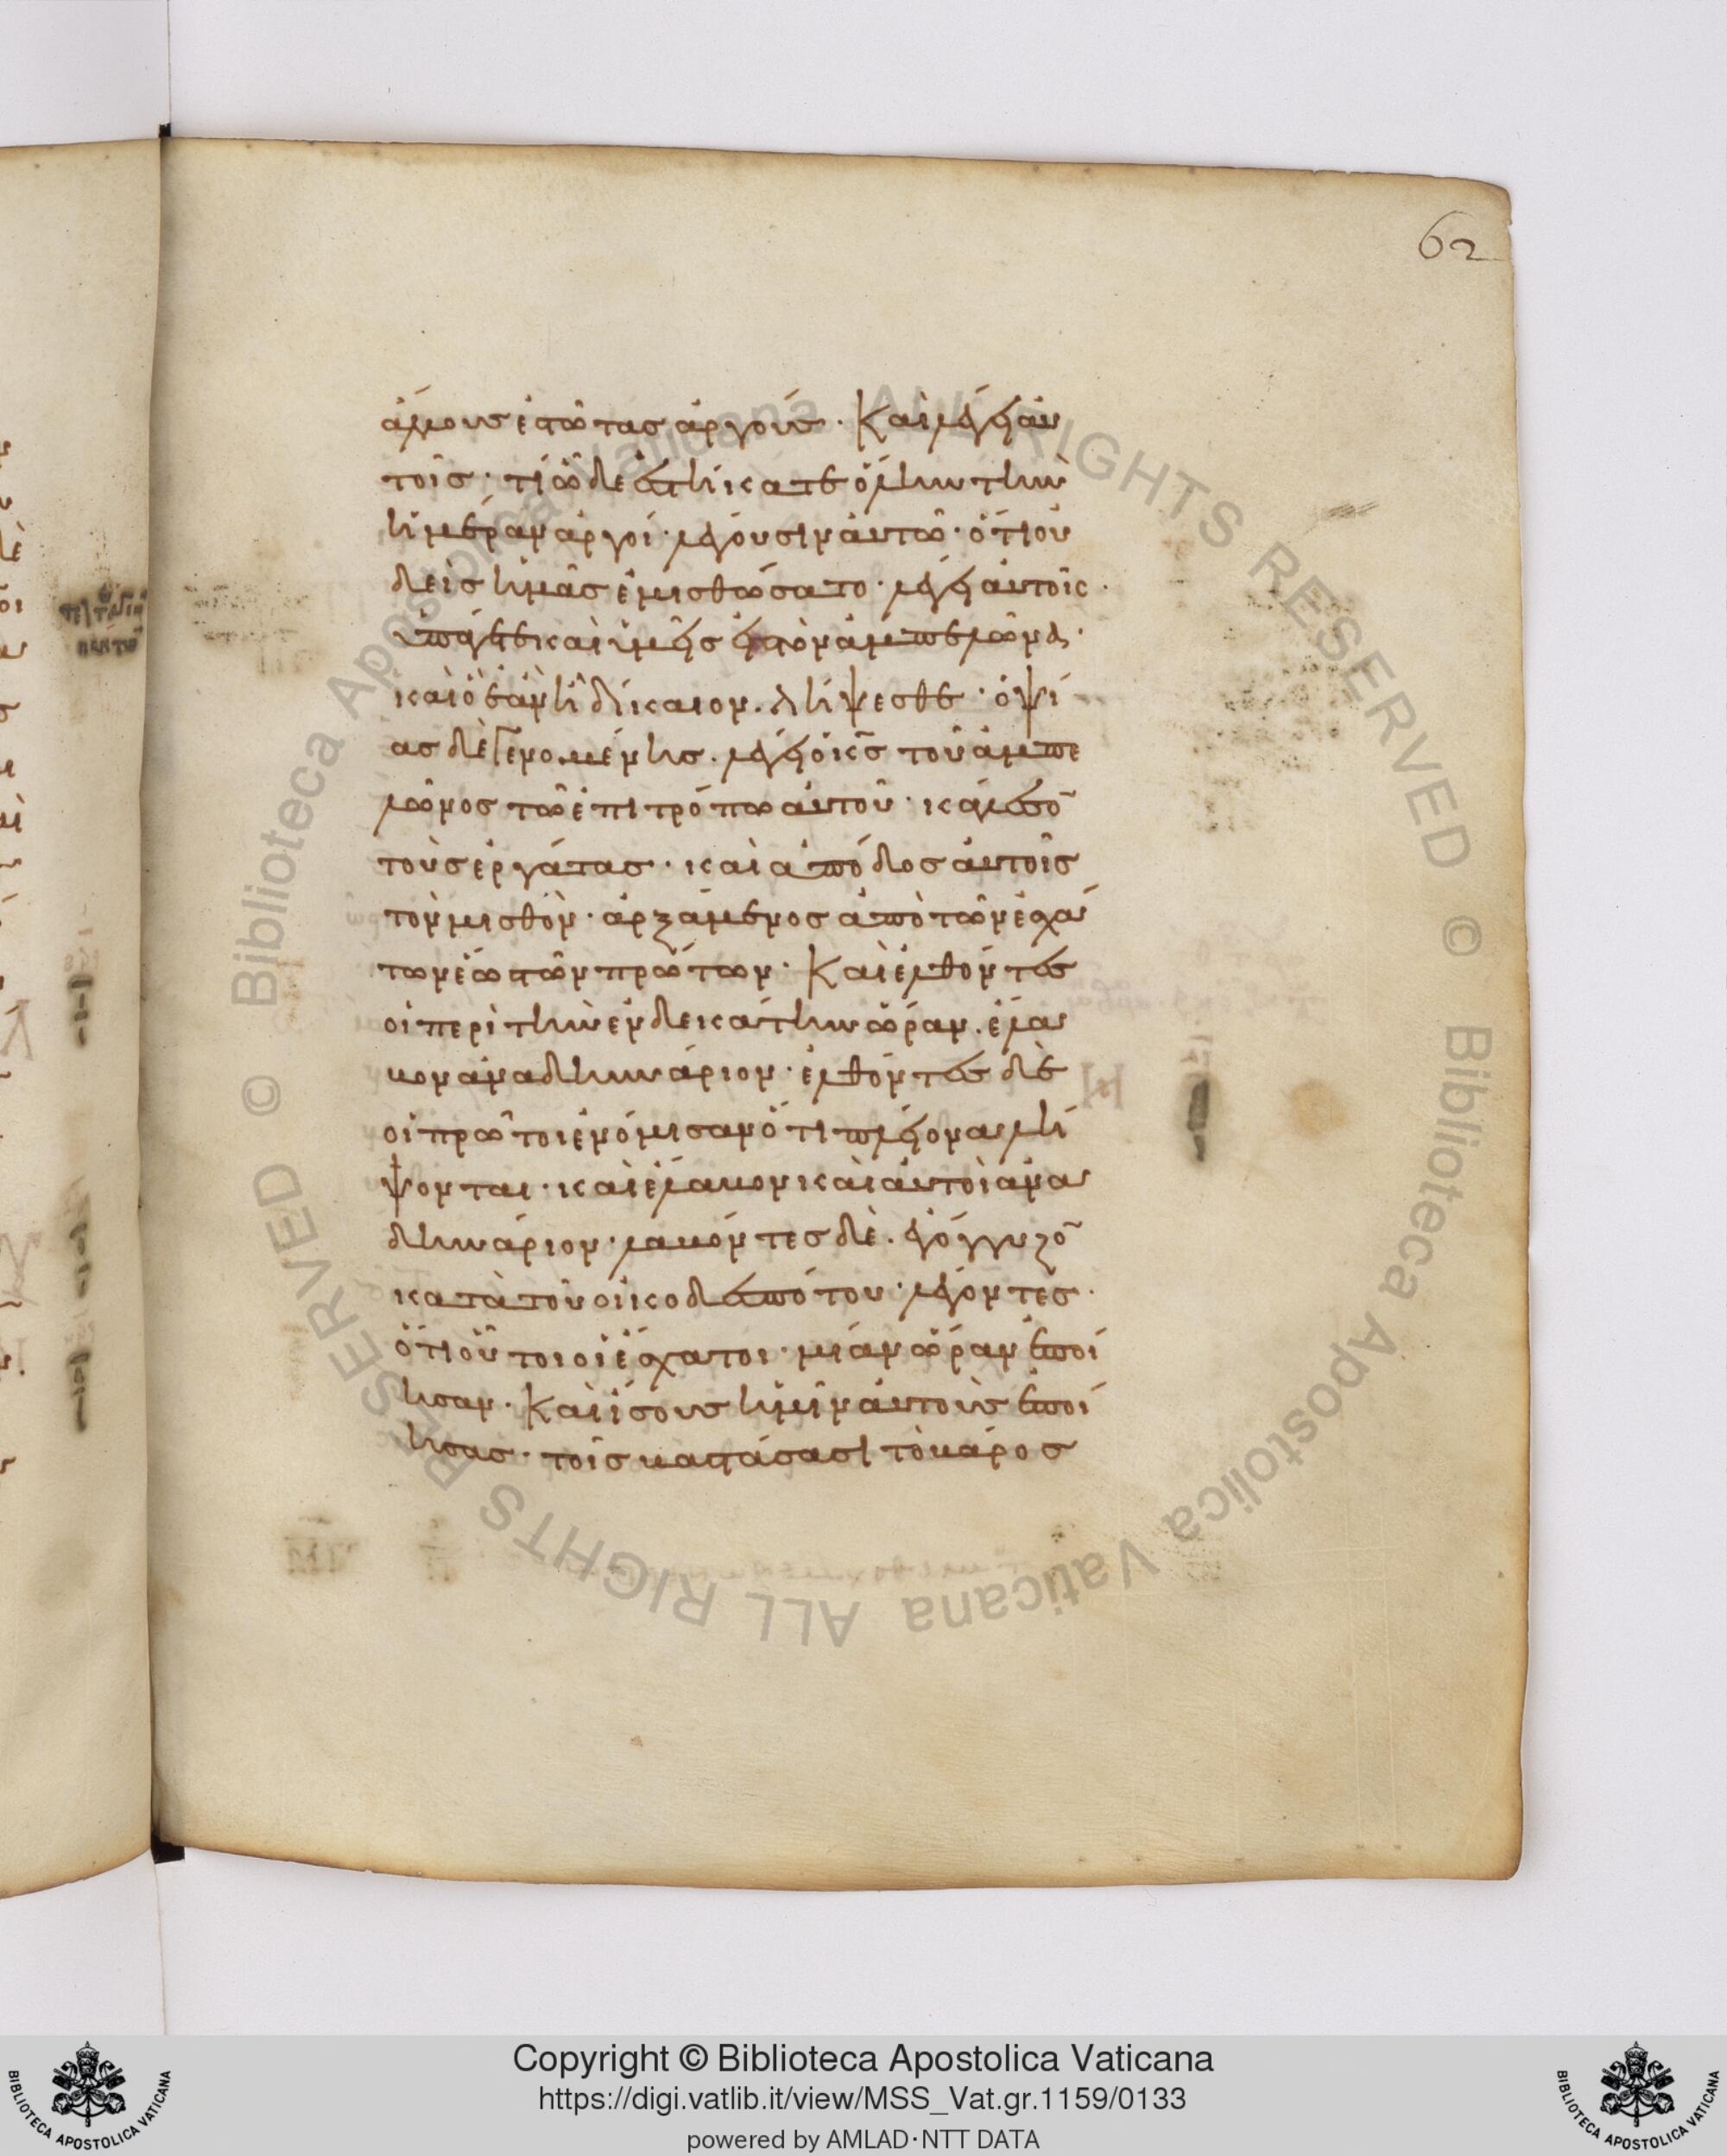 62
ἄλλους ἑστῶτας ἀργούς· Και λέγει αὐ
τοῖς· τί ὧδε ἑστήκατε ὅλην τὴν
ἡμέραν ἀργοί· λέγουσιν αὐτῶ· ὅτι οὐ
δεὶς ἡμᾶς ἐμισθώσατο· λέγει αὐτοῖς·
ὑπάγετε καὶ ὑμεῖς εἰς τὸν ἀμπελῶνα·
καὶ ὃ ἐὰν ἦ δίκαιον. λήψεσθε· ὀψί
ας δὲ γενομένης. λέγει ὁ κς̄ τοῦ ἀμπε
λῶνος τῶ ἐπιτρόπω αὐτοῦ· κάλεσο̄
τοὺς ἐργάτας· καὶ ἀπόδος αὐτοῖς
τὸν μισθὸν· ἀρξάμενος ἀπὸ τῶν ἐσχά
των ἕως τῶν πρώτων· Καὶ ἐλθόντες
οἱ περὶ τὴν ἑνδεκάτην ὥραν. ἔλα
βον ἀνα δηνάριον· ἐλθόντες δὲ
οἱ πρῶτοι ἐνόμισαν ὅτι πλείονα λή
ψονται· καὶ ἔλαβον καὶ αὐτοὶ ἀνα
δηνάριον· λαβόντες δὲ. ἐγόγγυζο̄
κατὰ τοῦ οἰκοδεσπότου· λέγοντες·
ὅτι οὗτοι οἱ ἔσχατοι· μίαν ὥραν ἐποί
ησαν· Καὶ ἴσους ἡμῖν αὐτοὺς ἐποί
ησας· τοῖς βαστάσασι τὸ βάρος
Copyright © Biblioteca Apostolica Vaticana
https://digi.vatlib.it/view/MSS_Vat.gr.1159/0133
powered by AMLAD·NTT DATA
BIBLIOTECA APOSTOLICA VATICANA
BIBLIOTECA APOSTOLICA VATICANA
© Biblioteca Apostolica Vaticana ALL RIGHTS RESERVED
© Biblioteca Apostolica Vaticana ALL RIGHTS RESERVED